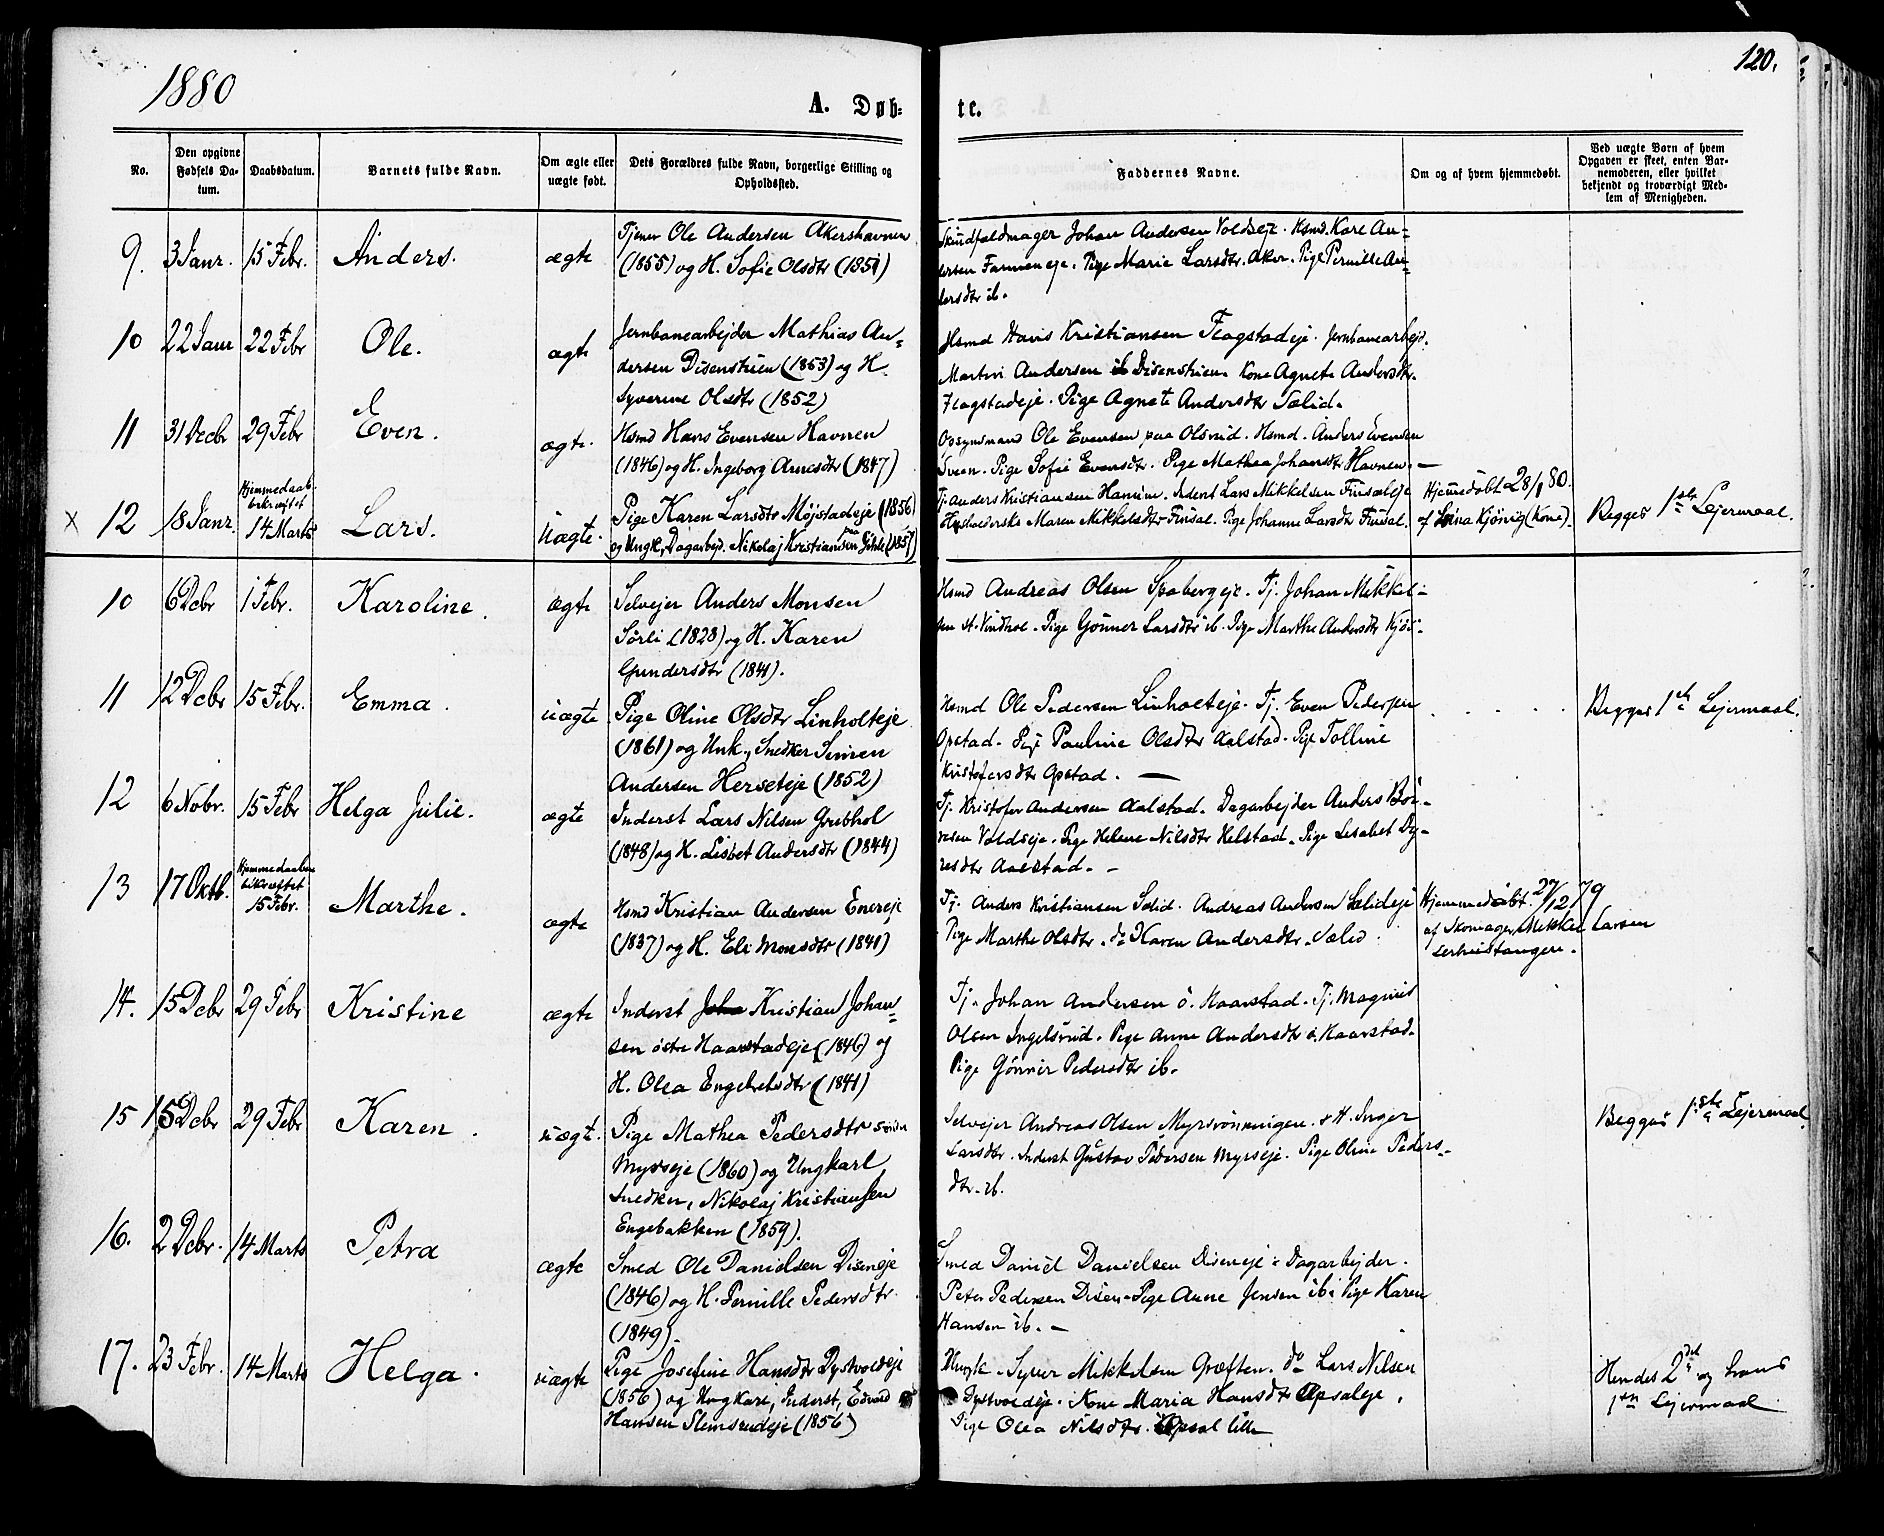 1880
120.
A. Døb=
te.
No.
Den opgivne Fødsels Datum.
Daabsdatum.
Barnets fulde Navn.
Om ægte eller uægte født.
Dets Forældres fulde Navn, borgerlige Stilling og Opholdssted.
Faddernes Navne.
Om og af hvem hjemmedøbt.
Ved uægte Børn af hvem Opgaven er skeet, enten Barnemoderen, eller hvilket bekjendt og troværdigt Medlem af Menigheden.
9. 3 Janr. 15 Febr. Anders. ægte
Tjener Ole Andersen Akershavnen
(1855) og H. Sofie Olsdtr (1851)
Skindfeldmager Johan Andersen Voldseje. Hsmd. Kare An=
dersen Farmeneje. Pige Marie Larsdtr. Aker. Pige Pernille An=
dersdtr ib.
10 22 Janr 22 Febr Ole. ægte
Jernbanearbejder Mathias An=
dersen Disenstuen (1853) og H.
Syverine Olsdtr (1852)
Hsmd Hans Kristiansen Flagstadeje. Jernbanearbejd.
Martin Andersen ib Disenstuen. Kone Agnete Andersdtr.
Flagstadeje. Pige Agnete Andersdtr Sælid.
11 31 Decbr 29 Febr Even. ægte.
Hsmd Hans Evensen Havnen
(1846) og H. Ingeborg Arnesdtr (1847)
Opsynsmand Ole Evensen paa Olsrud. Hsmd. Anders Evensen
Sveen. Pige Sofie Evensdtr. Pige Mathea Johansdtr Havnen. —
x 12 18 Janr. Hjemmedaab. bekræftet 14 Marts Lars. Uægte.
Pige Karen Larsdtr Møjstadeje (1856)
og Ungk. Dagarbejd. Nikolaj Kristiansen Gihle (1857)
Tj. Anders Kristiansen Hamum. Inderst Lars Mikkelsen Finsaleje
Husholderske Maren Mikkelsdtr Finsal. Pige Johanne Larsdtr Finsal.
Hjemmedøbt 28/1 80.
af Lina Kjønvig (Kone).
Begges 1ste Lejermaal.
10 6 Dcbr 1 Febr. Karoline. ægte
Selvejer Anders Monsen
Sørli (1828) og H. Karen
Gundersdtr (1841).
Hsmd Andreas Olsen Spabergeje. Tj. Johan Mikkel=
sen N. Vindhol. Pige Gønner Larsdtr ib. Pige Marthe Andersdtr
11 12 Dcbr 15 Febr. Emma. uægte
Pige Oline Olsdtr Linholteje
(1861) og Unk., Snedker Simen
Andersen Herseteje (1852)
Hsmd Ole Pedersen Linholteje. Tj. Even Pedersen
Opstad. Pige Pauline Olsdtr Aalstad. Pige Tolline
Kristofersdtr Opstad. —
Begges 1ste Lejermaal.
12 6 Nobr. 15 Febr Helga Julie. ægte
Inderst Lars Nilsen Grebhol
(1848) og H. Lisbet Andersdtr (1844)
Tj. Kristofer Andersen Aalstad. Dagarbejder Anders Bør=
resen Voldseje. Pige Helene Nilsdtr Helstad. Pige Lisabet Dy=
resdtr Aalstad. —
13 17 Oktb. Hjemmedaaben bekræftet 15 Febr. Marthe. ægte
Hsmd Kristian Andersen Enereje
(1837) og H. Eli Monsdtr (1841)
Tj. Anders Kristiansen Sælid. Andreas Andersen Sælideje
Pige Marthe Olsdtr. do Karen Andersdtr. Sælid.
Hjemmedøbt. 27/12 79
af Skomager Mikkel Larsen
14. 15 Dcbr 29 Febr Kristine ægte
Inderst Kristian Johan=
sen østre Haarstadeje (1846) og
H. Olea Engebretsdtr (1841)
Tj. Johan Andersen ø. Haarstad. Tj. Magnus
Olsen Ingelsrud. Pige Anne Andersdtr ø. Haarstad.
Pige Gønner Pedersdtr ib.
15 15 Dcbr 29 Febr Karen. uægt.
Pige Mathea Pedersdtr Søndre
Myrseje (1860) og Ungkarl,
Snedker, Nikolaj Kristiansen
Engebakken (1859).
Selvejer Andreas Olsen Myrsrønningen. & H. Inger
Larsdtr. Inderst Gustav Pedersen Myrseje. Pige Oline Peders=
dtr. ib.
Begges 1ste Lejermaal.
16. 2 Dcbr. 14 Marts Petra ægte
Smed Ole Danielsen Diseneje
(1846) og H. Pernille Pedersdtr.
(1849).
Smed Daniel Danielsen Diseneje. Dagarbejder.
Peter Pedersen Disen. Pige Anne Jensen ib. Pige Karen
Hansen ib. —
17. 23 Febr. 14 Marts Helga. uægte
Pige Josefine Hansdtr Dystvoldeje
(1856) og Ungkarl, Inderst, Edvard
Hansen Slemsrudeje (1856)
Ungk. Syver Mikkelsen Grøften. do Lars Nilsen
Dystvoldeje. Kone Maria Hansdtr Opsaleje.
Pige Olea Nilsdtr. Opsal lille
Hendes 2det og hans
1ste Lejermaal